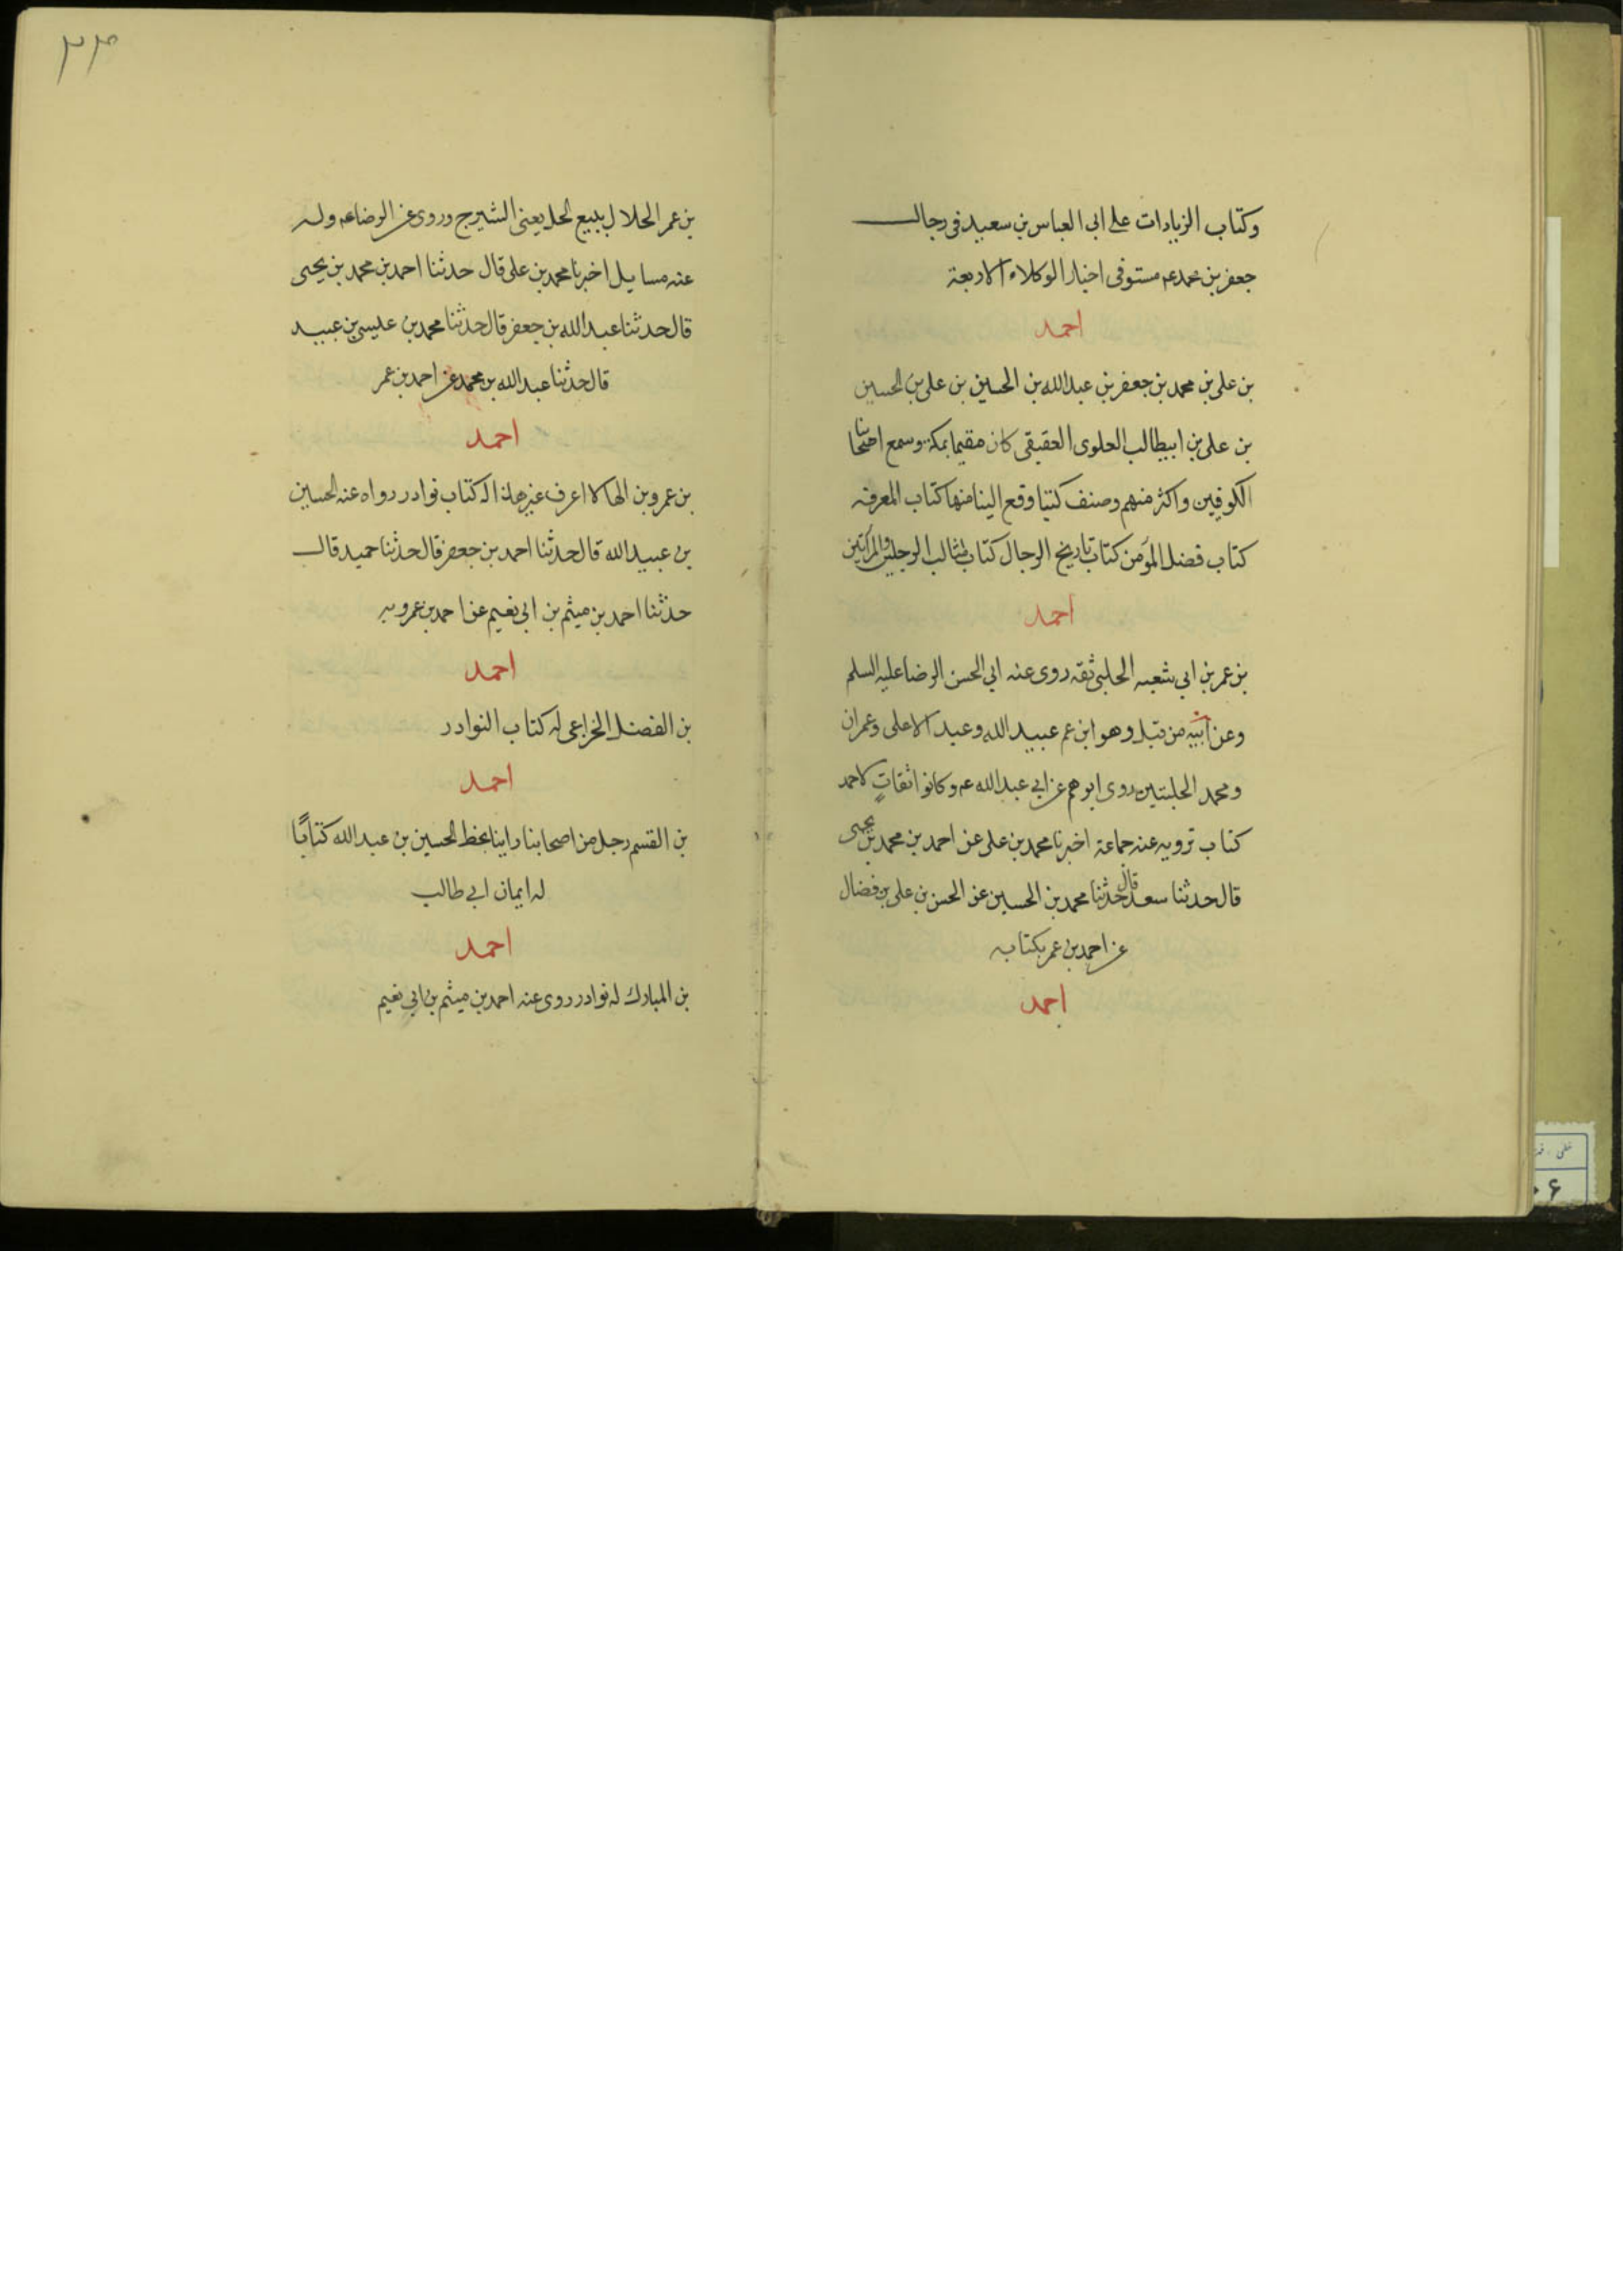 وكتاب الزيادات على ابى العباس بن سعيد فى رجال
جعفر بن محمد عم مستوفى اخبار الوكلاء الاربعة
احمد
بن على بن محمد بن جعفر بن عبدالله بن الحسين بن على بن الحسين
بن على بن ابيطالب العلوى العقيقى كان مقيما بمكة وسمع اصحابنا
الكوفيين واكثر منهم وصنف كتبا وقع الينا منها كتاب المعرفه
كتاب فضل المؤمن كتاب تاريخ الرجال كتاب مثالب الرجلين والمرأتين
احمد
بن عمر بن ابى شعبه الحلبى ثقه روى عنه ابى الحسن الرضا عليه السلم
وعن ابيه من قبل وهو ابن عم عبيد الله وعبد الاعلى وعمران
ومحمد الحلبيين روى ابوهم عن ابى عبد الله عم وكانوا ثقات لاحمد
كتاب ترويه عنه جماعة اخبرنا محمد بن على عن احمد بن محمد بن يحيى
قال حدثنا سعد قال حدثنا محمد بن الحسين عن الحسن بن على بن فضال
عن احمد بن عمر بكتابه
احمد
۳۳
بن عمر الحلال يبيع الحل يعنى الشيرج وروى عن الرضا عم وله
عنه مسايل اخبرنا محمد بن على قال حدثنا احمد بن محمد بن يحيى
قال حدثنا عبد الله بن جعفر قال حدثنا محمد بن عليسى بن عبيد
قال حدثنا عبد الله بن محمد عن احمد بن عمر
احمد
بن عمرو بن الها لا اعرف غير هذا له كتاب نوادر رواه عنه الحسين
بن عبيد الله قال حدثنا احمد بن جعفر قال حدثنا حميد قال
حدثنا احمد بن ميثم بن ابى نعيم عن احمد بن عمرو به
احمد
بن الفضل الخزاعى له كتاب النوادر
احمد
بن القسم رجل من اصحابنا راينا بخط الحسين بن عبد الله كتابًا
له ايمان ابى طالب
احمد
بن المبارك له نوادر روى عنه احمد بن ميثم بن ابى نعيم